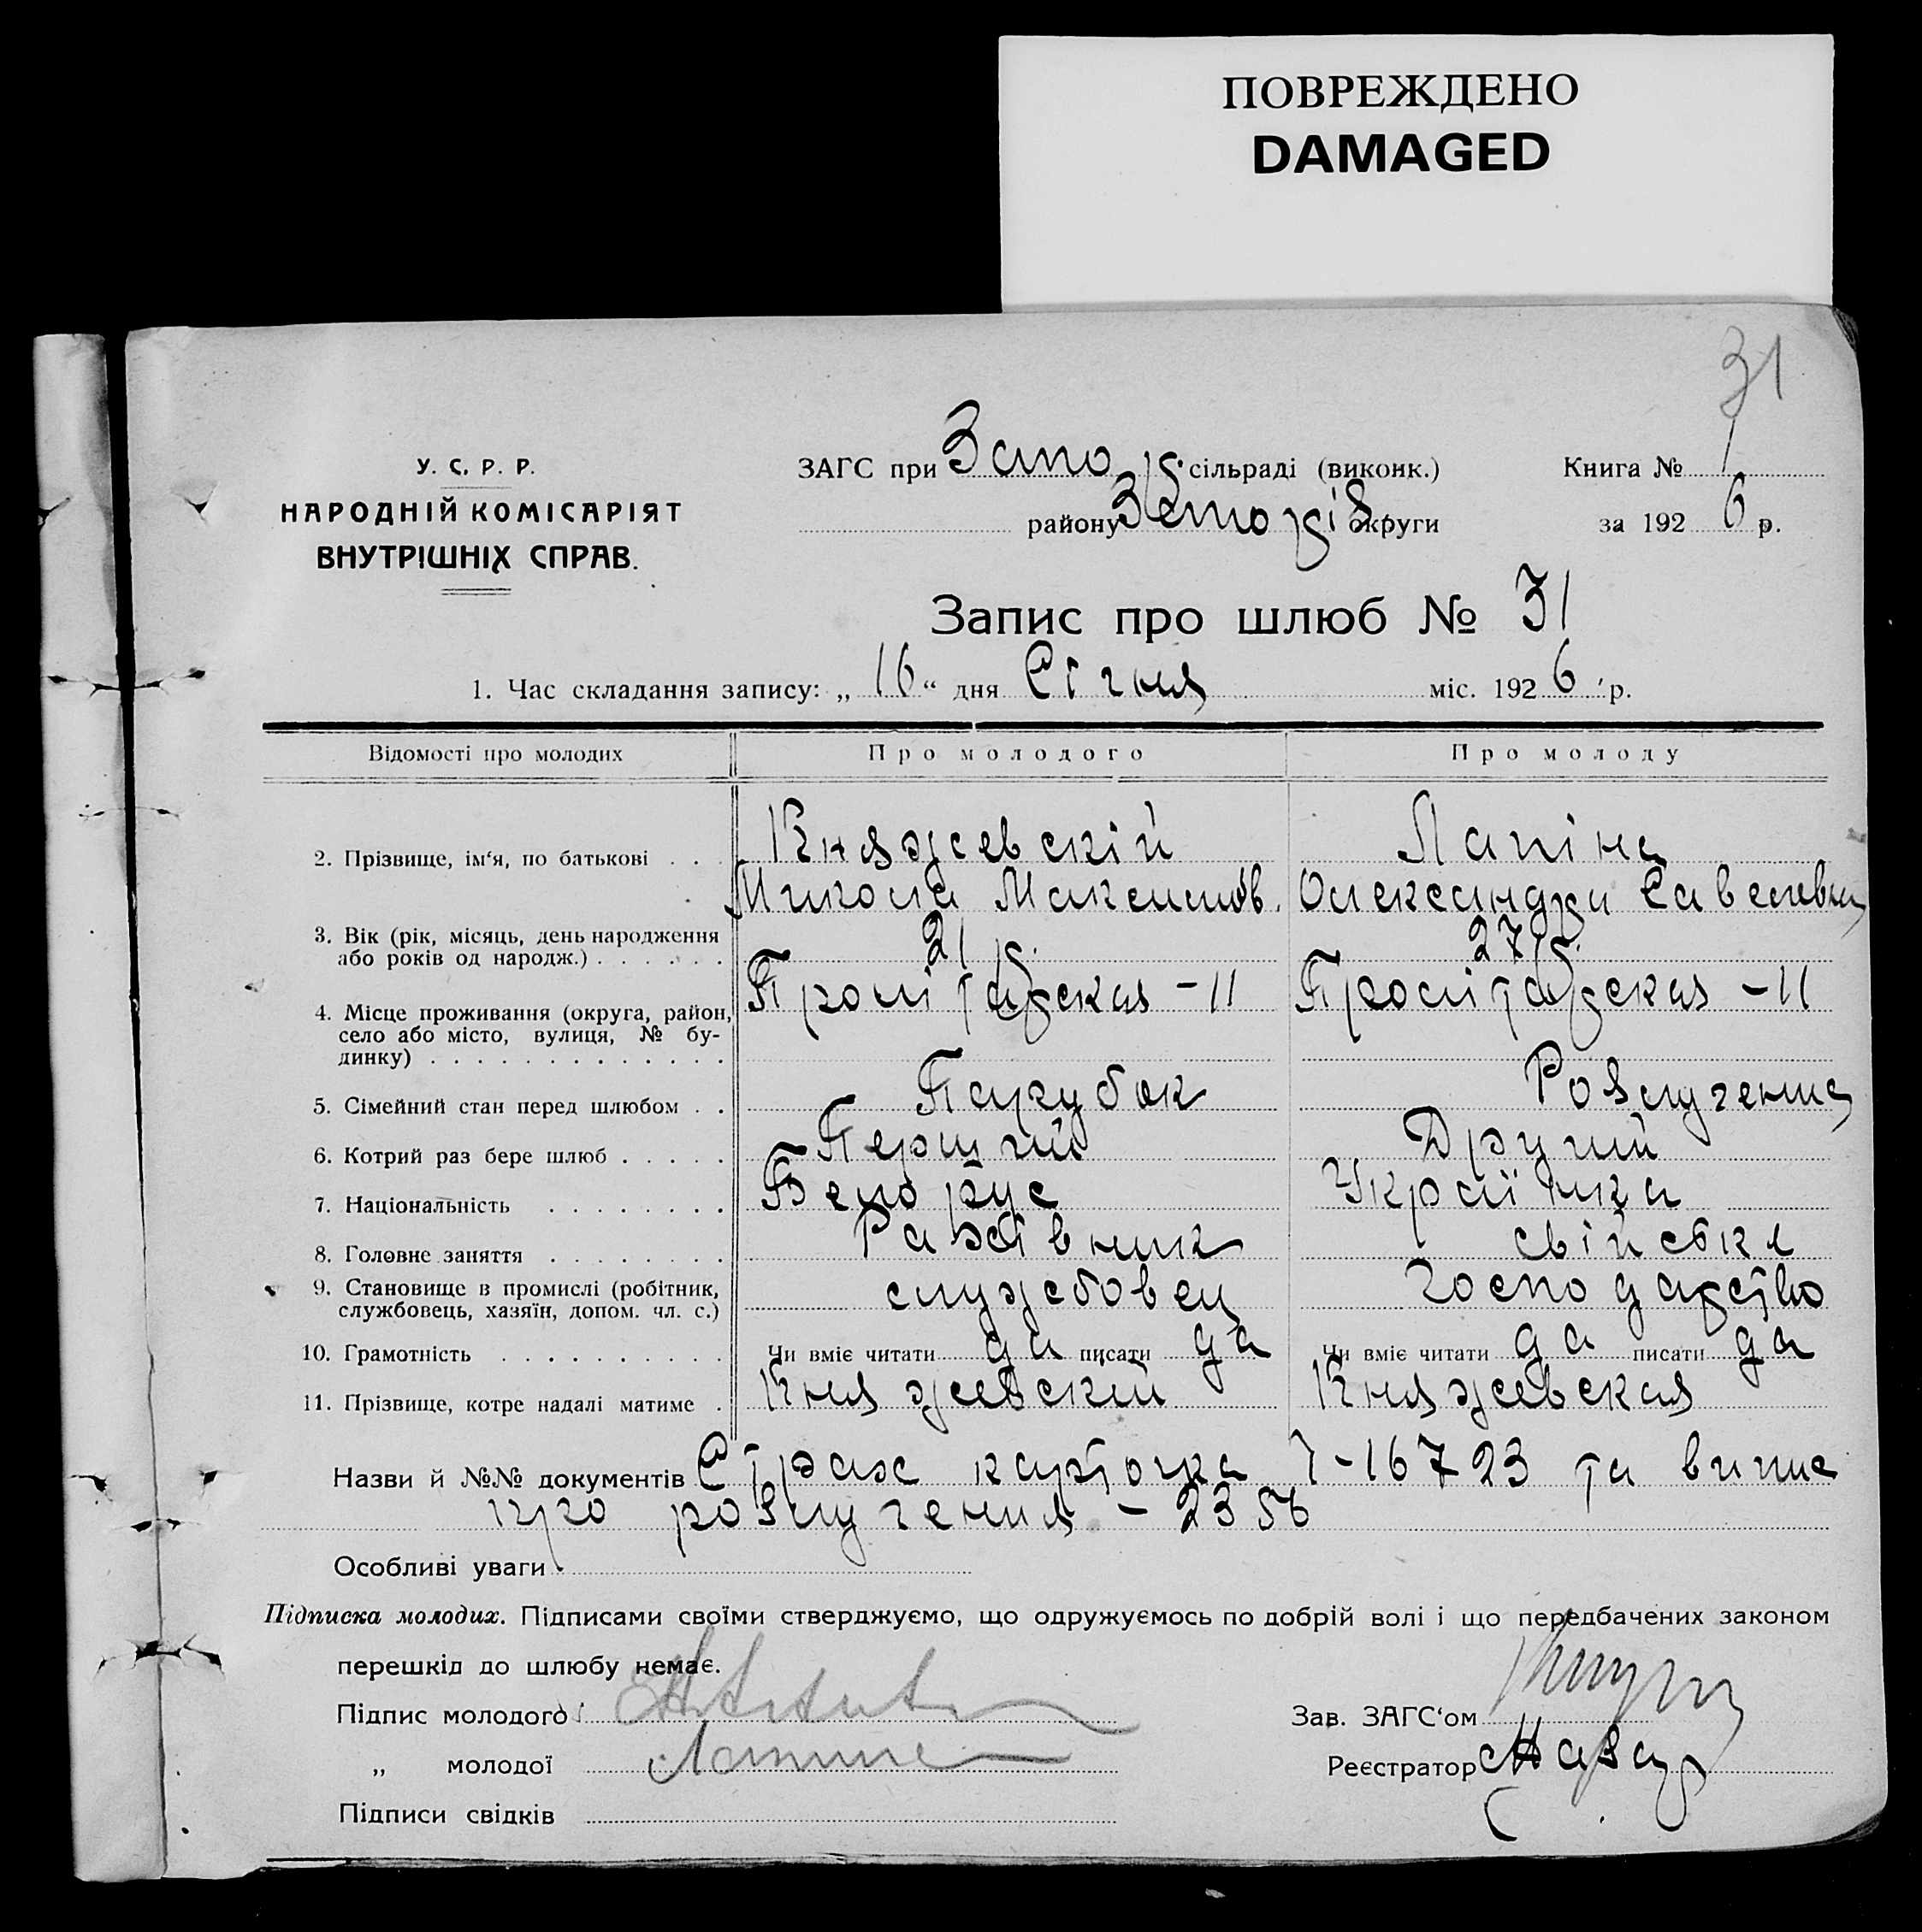 ПОВРЕЖДЕНО
DAMAGED
31
У. С. Р. Р.
НАРОДНІЙ КОМІСАРІЯТ
ВНУТРІШНІХ СПРАВ.
ЗАГС при Запор. сільраді (виконк.)
району Запорiз округи
Книга № 1
за 1926 р.
Запис про шлюб № 31
1. Час складання запису: „16“ дня Січня міс. 1926 р.
Відомості про молодих Про молодого Про молоду
2. Прізвище, ім‘я, по батькові . . Княжевскій Лапіна
Микола Максимов. Олександра Савелевна
3. Вік (рік, місяць, день народження
або років од народж.) . . . . . . 21 р. 27 р.
4. Місце проживання (округа, район,
село або місто, вулиця, № бу-
динку) . . . . . . . . . . . . . Пролітарская - 11 Пролітарская - 11
5. Сімейний стан перед шлюбом . . Парубок Розлучена
6. Котрий раз бере шлюб . . . . . Перший Другий
7. Національність . . . . . . . . Белорус Українка
8. Головне заняття . . . . . . . . свійське
9. Становище в промислі (робітник,
службовець, хазяїн, допом. чл. с.) службовец господарство
10. Грамотність . . . . . . . . . . Чи вміє читати да писати да Чи вміє читати да писати да
11. Прізвище, котре надалі матиме . Княжевский Княжевская
Назви й №№ документів Страх карточка 1-16723 та випис
про розлучення - 2356
Особливі уваги
Підписка молодих. Підписами своїми стверджуємо, що одружуємось по добрій волі і що передбачених законом
перешкід до шлюбу немає.
Підпис молодого
Зав. ЗАГС‘ом
„ молодої
Реєстратор
Підписи свідків